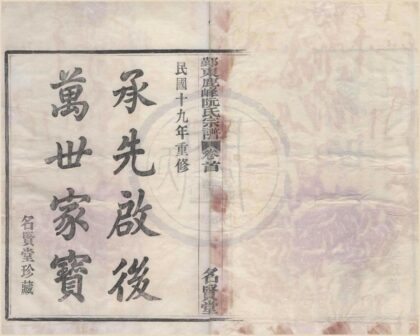 鄞東鹿峰阮氏宗譜
卷首
名賢堂
民國十九年重修
承先啟後
萬世家寶
名賢堂珍藏